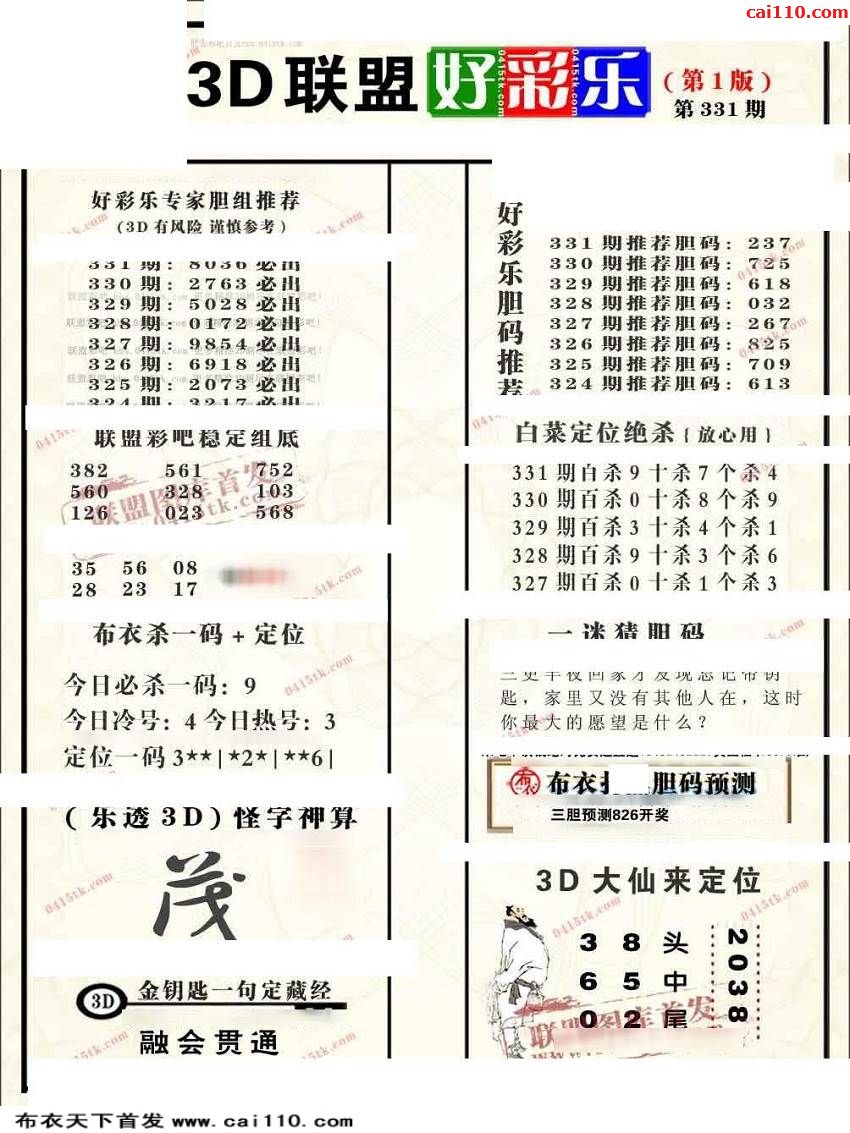 cai110.com
3D联盟好彩乐
(第1版)
第331期
好彩乐专家胆组推荐
(3D有风险 谨慎参考)
331期: 8036必出
330期: 2763必出
329期: 5028必出
328期: 0172必出
327期: 9854必出
326期: 6918必出
325期: 2073必出
324期: 3217必出
联盟彩吧稳定组底
382 561 752
560 328 103
126 023 568
35 56 08
28 23 17
布衣杀一码+定位
今日必杀一码: 9
今日冷号: 4 今日热号: 3
定位一码 3**|*2*|**6|
(乐透3D)怪字神算
茂
3D 金钥匙一句定藏经
融会贯通
好彩乐胆码推荐
331期推荐胆码: 237
330期推荐胆码: 725
329期推荐胆码: 618
328期推荐胆码: 032
327期推荐胆码: 267
326期推荐胆码: 825
325期推荐胆码: 709
324期推荐胆码: 613
白菜定位绝杀{放心用}
331期百杀9十杀7个杀4
330期百杀0十杀8个杀9
329期百杀3十杀4个杀1
328期百杀9十杀3个杀6
327期百杀0十杀1个杀3
一迷猜胆码
三更半夜回家才发现忘记带钥
匙，家里又没有其他人在，这时
你最大的愿望是什么？
布衣 胆码预测
三胆预测826开奖
3D大仙来定位
3 8 头
6 5 中
0 2 尾
2038
联盟图库首发
0415tk.com
布衣天下首发 www.cai110.com